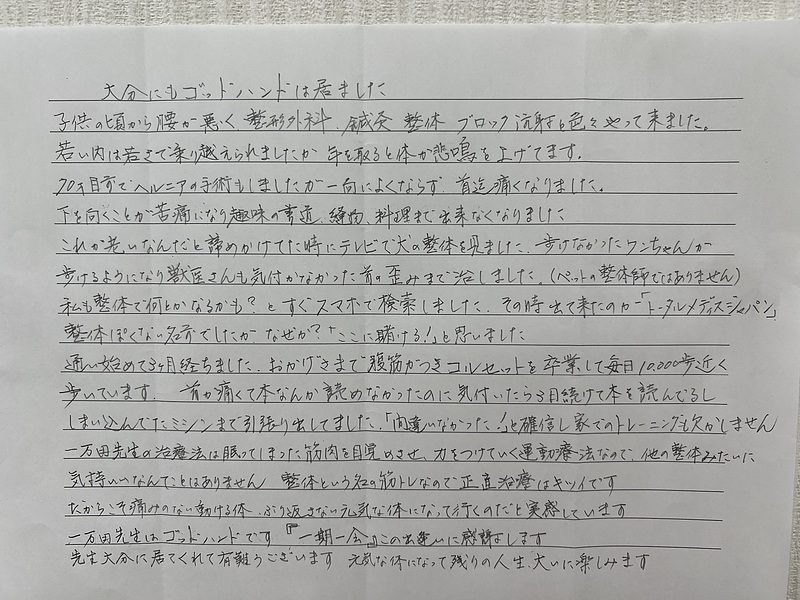 大分にもゴッドハンドは居ました
子供の頃から腰が悪く 整形外科、鍼灸 整体 ブロック注射と色々やって来ました。
若い内は若さで乗り越えられましたが 年を取ると体が悲鳴を上げてます。
70才目前でヘルニアの手術もしましたが一向によくならず、首迄痛くなりました。
下を向くことが苦痛になり趣味の書道、縫物、料理まで出来なくなりました
これが老いなんだと諦めかけてた時にテレビで犬の整体を見ました、歩けなかったワンちゃんが
歩けるようになり獣医さんも気付かなかった首の歪みまで治しました。(ペットの整体師ではありません)
私も整体で何とかなるかも?とすぐスマホで検索しました、その時出て来たのが「トータルメディスジャパン」
整体ぽくない名前でしたがなぜか?「ここに賭ける!」と思いました
通い始めて3ヶ月経ちました、おかげさまで腹筋がつきコルセットを卒業して毎日10,000歩近く
歩いています、 首が痛くて本なんか読めなかったのに気付いたら3日続けて本を読んでるし
しまい込んでたミシンまで引張り出してました、「間違いなかった!」と確信し家でのトレーニングも欠かしません
一万田先生の治療法は眠ってしまった筋肉を目覚めさせ、力をつけていく運動療法なので、他の整体みたいに
気持いいなんてことはありません 整体という名の筋トレなので正直治療はキツイです
だからこそ痛みのない動ける体、ぶり返さない元気な体になって行くのだと実感しています
一万田先生はゴッドハンドです 『一期一会』この出逢いに感謝します
先生大分に居てくれて有難うございます 元気な体になって残りの人生、大いに楽しみます